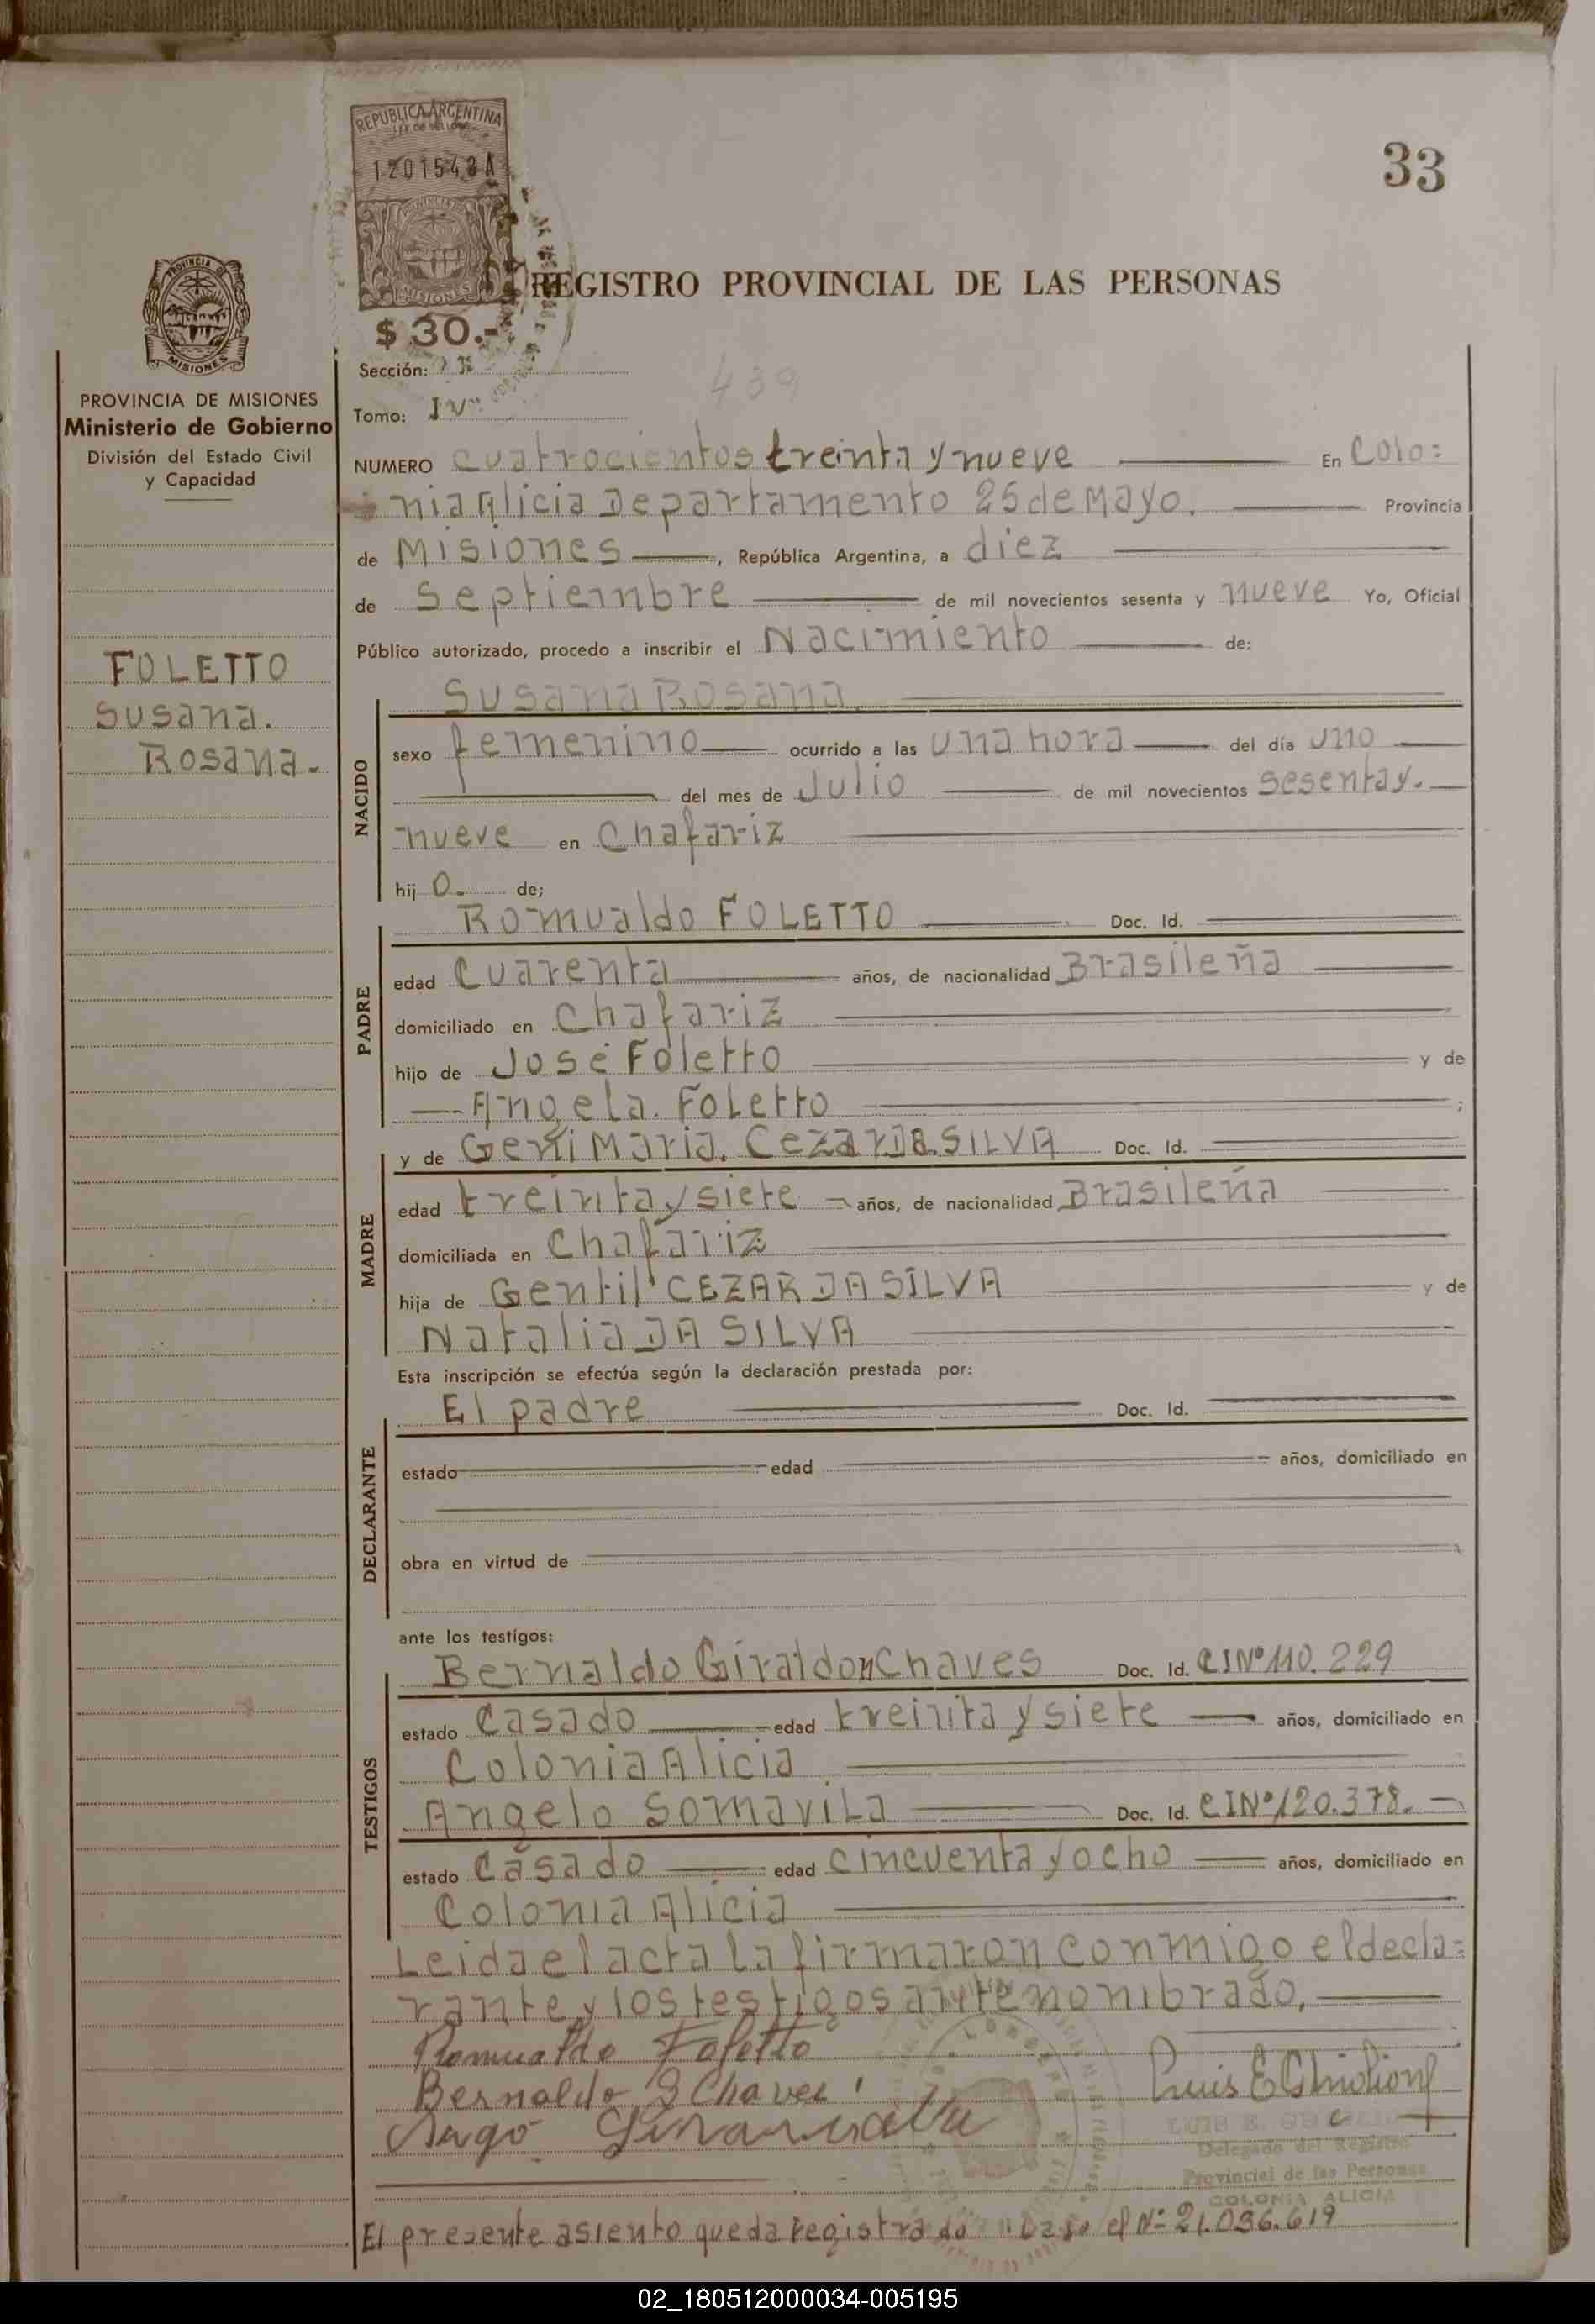 REPUBLICA ARGENTINA
LEY DE SELLOS
1201543A
PROVINCIA DE
MISIONES
$ 30.-
33
REGISTRO PROVINCIAL DE LAS PERSONAS
PROVINCIA DE
MISIONES
PROVINCIA DE MISIONES
Ministerio de Gobierno
División del Estado Civil
y Capacidad
FOLETTO
Susana.
Rosana.-
Sección:
439
Tomo: IVº
NUMERO cuatrocientos treinta y nueve En Colo=
nia Alicia Departamento 25 de Mayo. Provincia
de Misiones, República Argentina, a diez
de septiembre de mil novecientos sesenta y nueve Yo, Oficial
Público autorizado, procedo a inscribir el Nacimiento de:
Susana Rosana.
NACIDO
sexo femenino ocurrido a las una hora del día uno
del mes de Julio de mil novecientos sesenta y.
nueve en Chafariz
hij o. de;
Romualdo FOLETTO Doc. Id.
PADRE
edad cuarenta años, de nacionalidad Brasileña
domiciliado en Chafariz
hijo de José Foletto y de
Angela. Foletto ;
y de Genti Maria. Cezar Da SILVA Doc. Id.
MADRE
edad treinta y siete años, de nacionalidad Brasileña
domiciliada en Chafariz
hija de Gentil CEZAR DA SILVA y de
Natalia DA SILVA
Esta inscripción se efectúa según la declaración prestada por:
El padre Doc. Id.
DECLARANTE
estado edad años, domiciliado en
obra en virtud de
ante los testigos:
Bernaldo Giraldon Chaves Doc. Id. CI Nº 110.229
TESTIGOS
estado Casado edad treinta y siete años, domiciliado en
Colonia Alicia
Angelo Somavila Doc. Id. CI Nº 120.378.-
estado Casado edad cincuenta y ocho años, domiciliado en
Colonia Alicia
Leida el acta la firmaron conmigo el decla=
rante y los testigos antenombrado.
Romualdo Foletto
Bernaldo G Chaves
Delegado del Registro
Provincial de las Personas
COLONIA ALICIA
El presente asiento queda registrado bajo el Nº 21.036.619
02_180512000034-005195